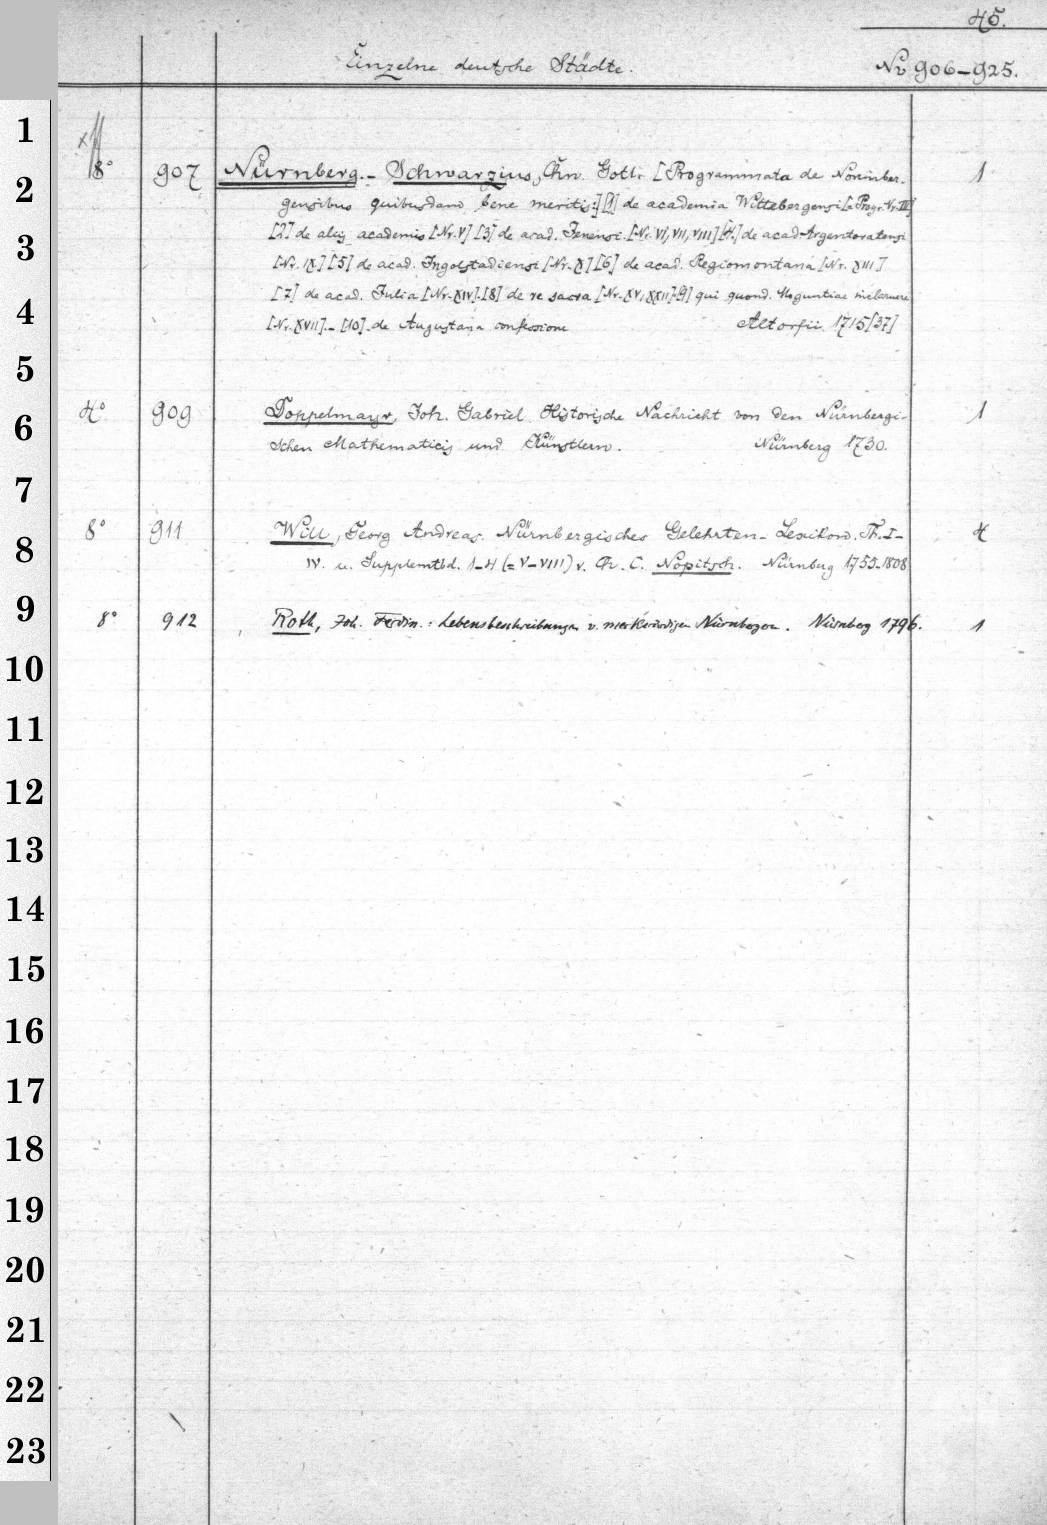 45.
Einzelne deutsche Städte. Nr 906-925.
1
8° 907 Nürnberg.- Schwarzius, Chn. Gotli. [Programmata de Norimber- 1
2
gensibus quibusdam bene meritis:] [1] de academia Wittebergensi [= Progr. Nr. III]
3
[2] de aliis academiis [Nr. V] [3] de acad. Jenensi. [Nr. VI, VII, VIII] [4.] de acad. Argentoratensi
[Nr. IX] [5] de acad. Ingolstadiensi [Nr. X] [6] de acad. Regiomontana [Nr. XIII]
4
[7] de acad. Julia [Nr. XIV]. [8] de re sacra [Nr. XV, XXII] [9] qui quond. Moguntiae inclaruere
[Nr. XVII].- [10]. de Augustana confessione Altorfii. 1715 [37]
5
4° 909 Doppelmayr, Joh. Gabriel Historische Nachricht von den Nürnbergi- 1
6
schen Mathematicis und Künstlern. Nürnberg 1730.
7
8° 911 Will, Georg Andreas. Nürnbergisches Gelehrten-Lexikon. Th. I- 4
8
IV. u. Supplemtbd. 1-4 (= V-VIII) v. Ch. C. Nopitsch. Nürnberg 1755-1808
9
8° 912 Roth, Joh. Ferdin.: Lebensbeschreibungen v. merkwürdigen Nürnberger. Nürnberg 1796. 1
10
11
12
13
14
15
16
17
18
19
20
21
22
23